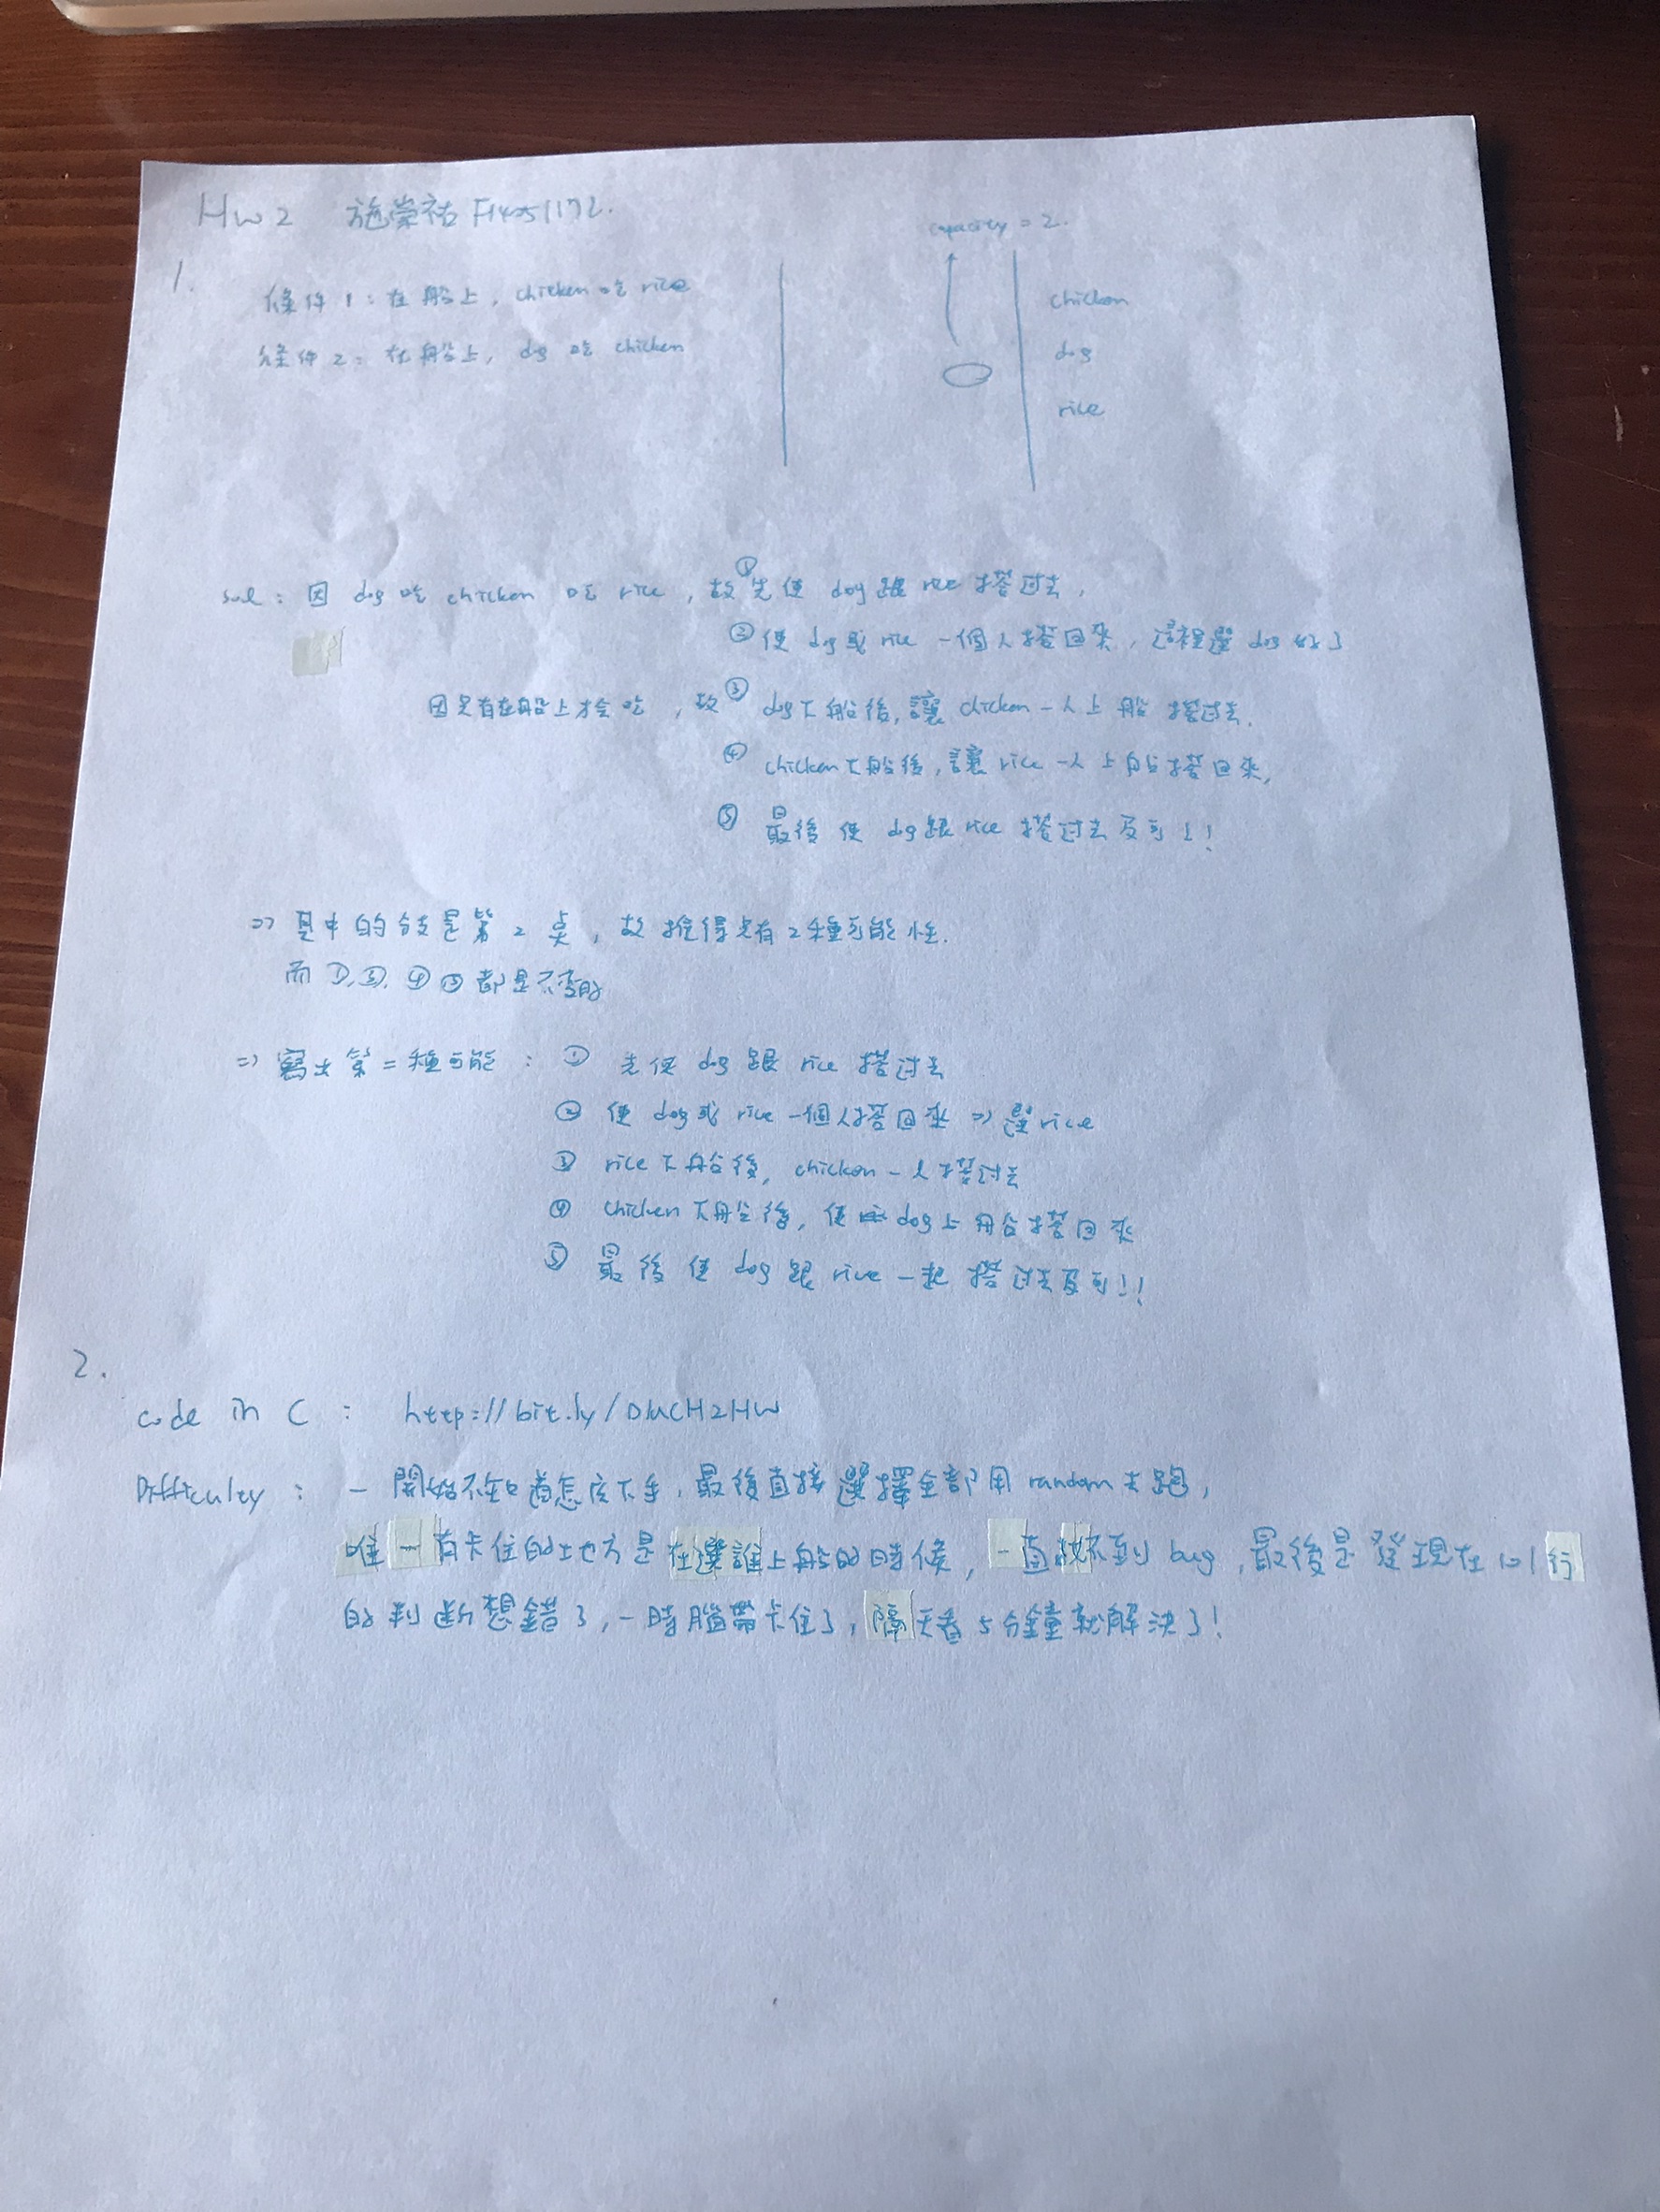 HW2 施崇祐 F14051172.
capacity = 2.
1.
條件1：在船上，chicken 吃 rice
條件2：在船上，dog 吃 chicken
chicken
dog
rice
sol：因 dog 吃 chicken 吃 rice，故①先使 dog 跟 rice 搭过去，
②使 dog 或 rice 一個人搭回來，這裡選 dog 好了
因只有在船上才会吃，故③ dog 下船後，讓 chicken 一人上船搭过去.
④ chicken 下船後，讓 rice 一人上船搭回來，
⑤ 最後使 dog 跟 rice 搭过去及可！！
=> 其中的分支是第2點，故推得只有2種可能性.
而①,③,④⑤都是不变的
=> 寫出第二種可能：① 先使 dog 跟 rice 搭过去
② 使 dog 或 rice 一個人搭回來 => 選 rice
③ rice 下船後，chicken 一人搭过去
④ chicken 下船後，使 dog 上船搭回來
⑤ 最後使 dog 跟 rice 一起搭过去及可！！
2.
code in C： http://bit.ly/DMCH2HW
Difficulty： 一開始不知道怎麼下手，最後直接選擇全部用 random 去跑，
唯一有卡住的地方是在選誰上船的時候，一直找不到 bug，最後是發現在101行
的判断想錯了，一時腦帶卡住了，隔天看5分鐘就解決了！